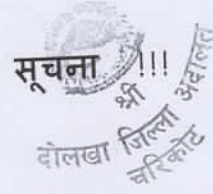 सूचना !!!
श्री
दोलखा जिल्ला अदालत
चरिकोट